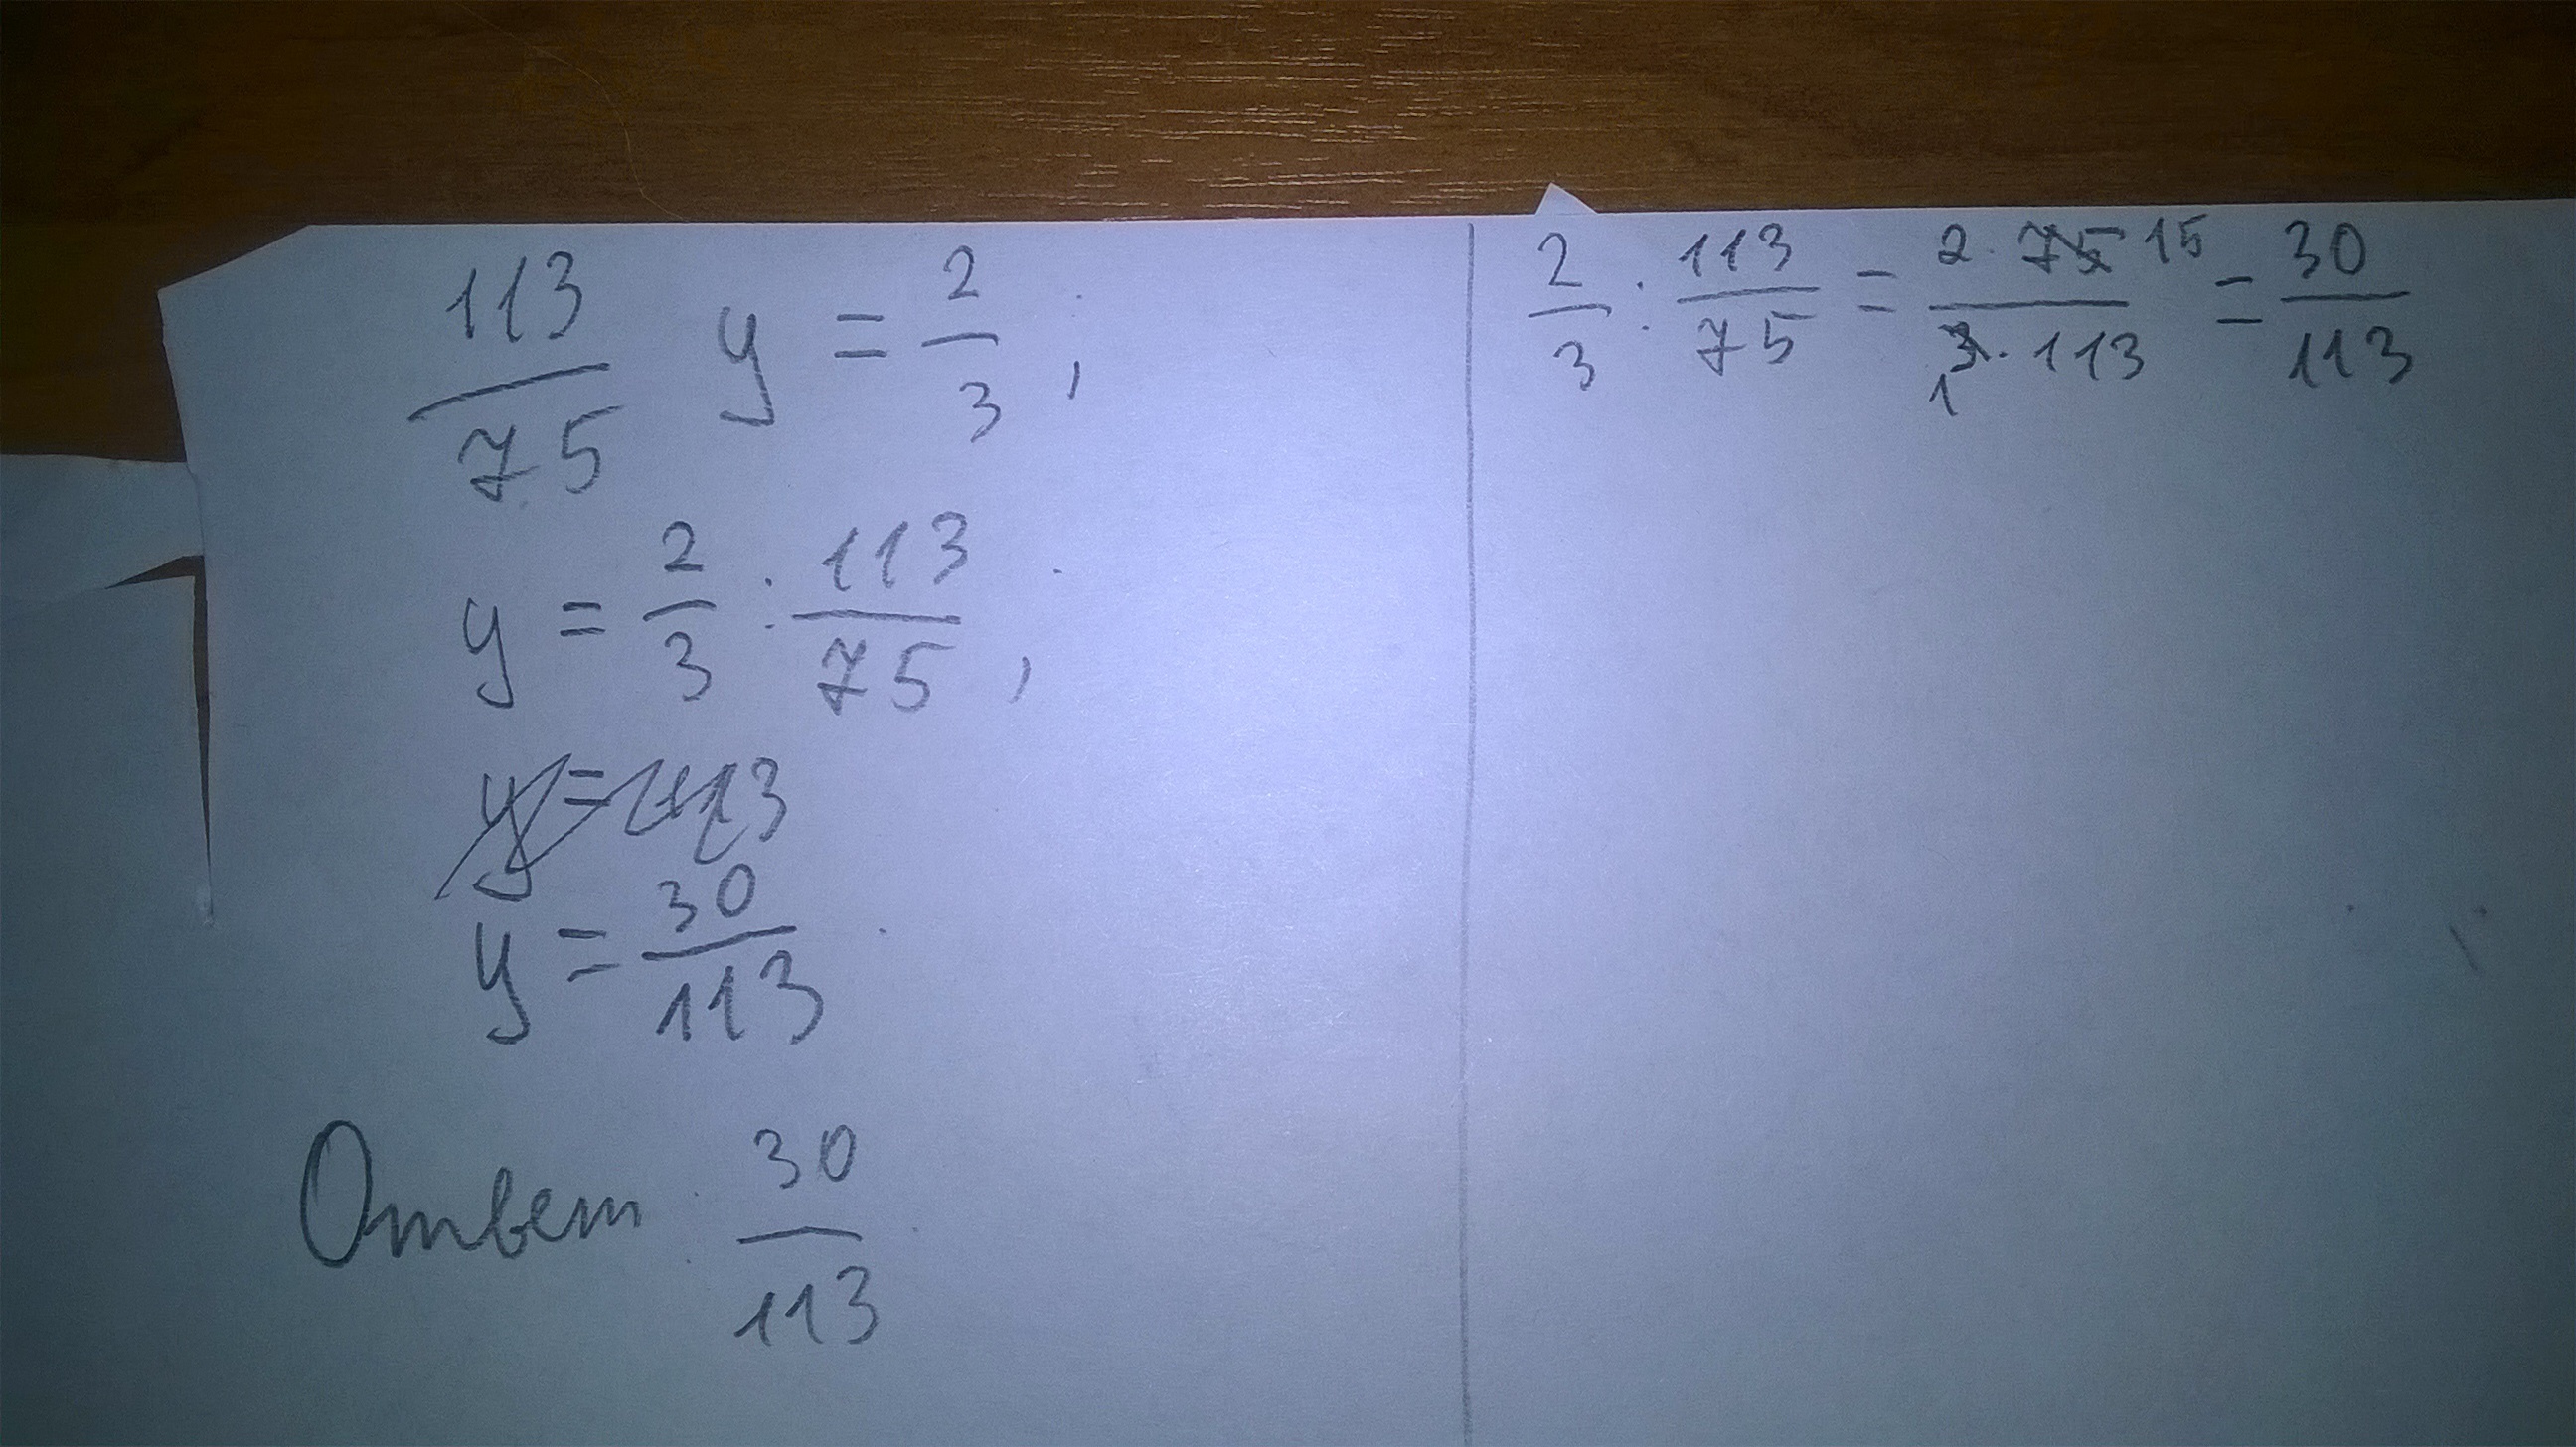 113/75 y = 2/3;
y = 2/3 : 113/75;
y = 30/113.
Ответ: 30/113.
2/3 : 113/75 = 2 · 75 15 / 3 1 · 113 = 30/113